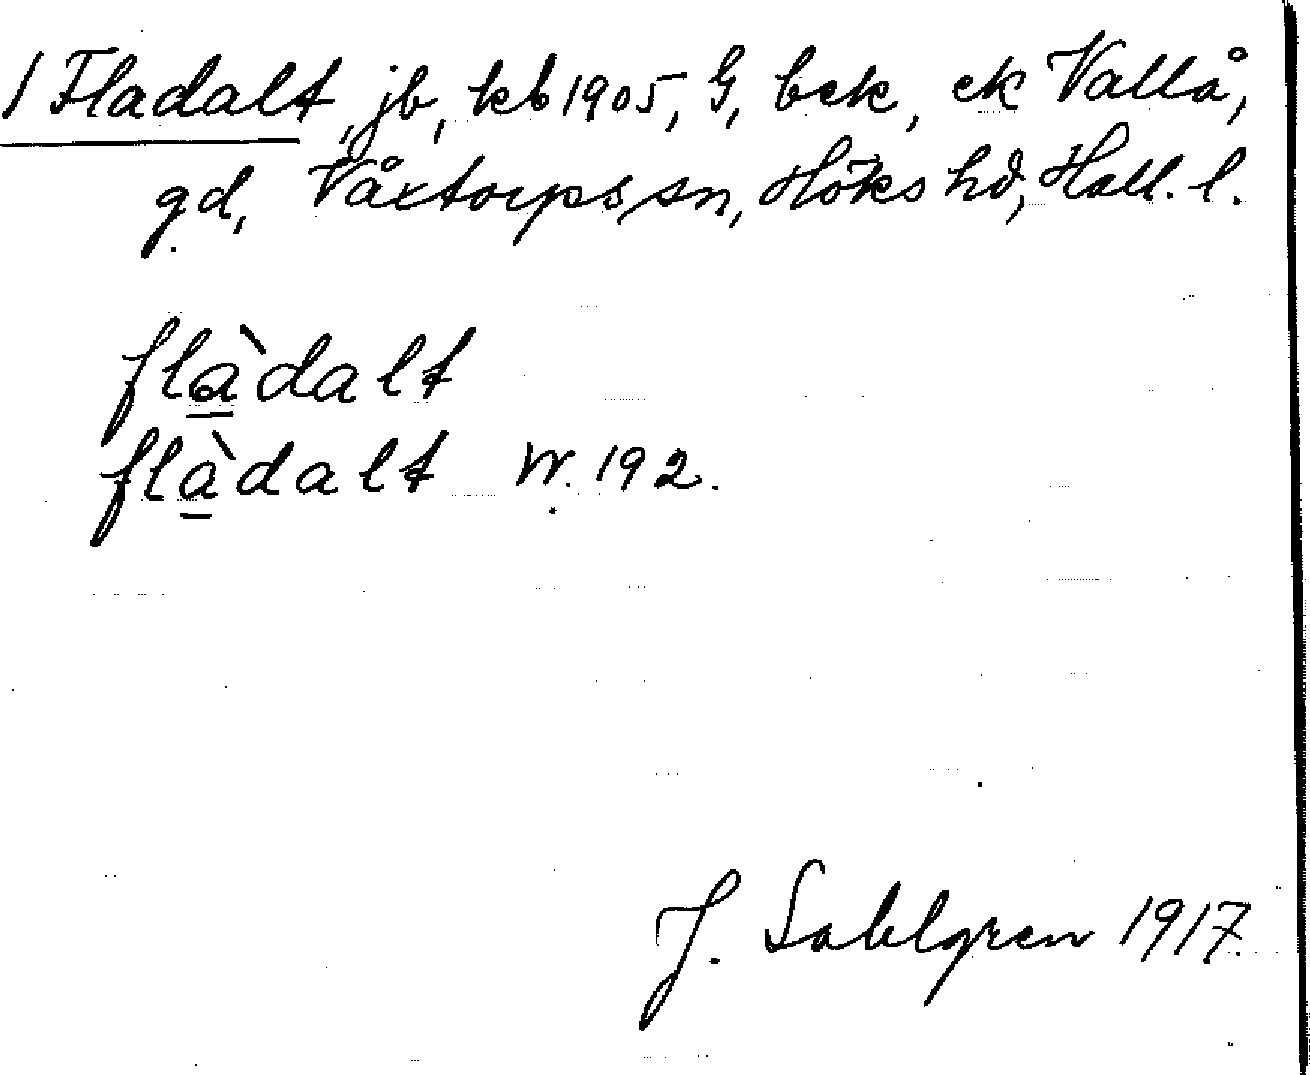 1 Fladalt, jb, kb 1905, G, bck, ek Vallå,
gd, Våxtorps sn, Höks hd, Hall. l.
flà̲dalt
flà̲dalt W. 192.
J. Sahlgren 1917.